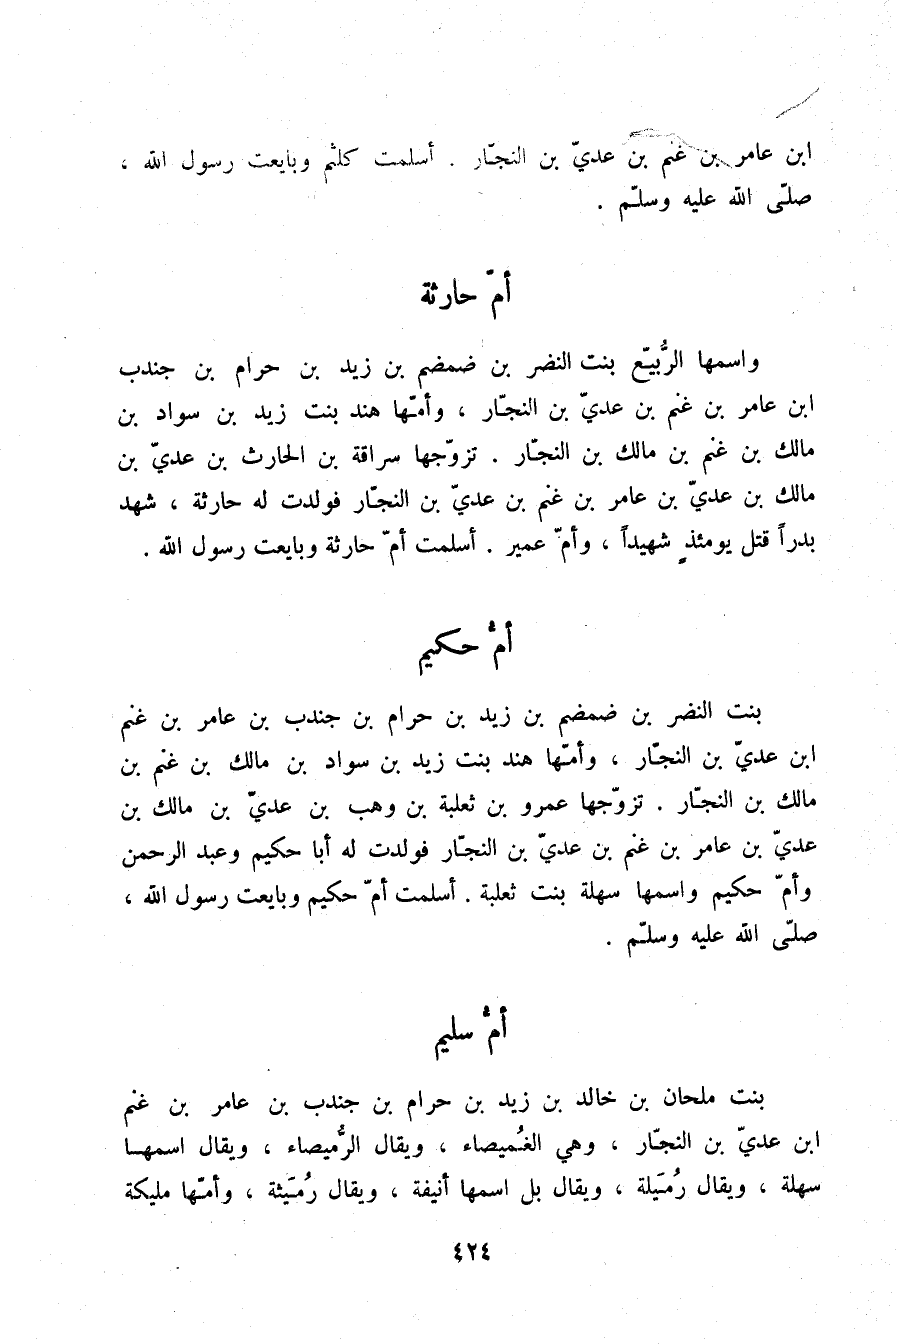 ابن عامر بن غنم بن عديّ بن النجّار . أسلمت كلثم وبايعت رسول الله ،
صلّى الله عليه وسلّم .
أمّ حارثة
واسمها الرُّبيّع بنت النضر بن ضمضم بن زيد بن حرام بن جندب
ابن عامر بن غنم بن عديّ بن النجّار ، وأمّها هند بنت زيد بن سواد بن
مالك بن غنم بن مالك بن النجّار . تزوّجها سراقة بن الحارث بن عديّ بن
مالك بن عديّ بن عامر بن غنم بن عديّ بن النجّار فولدت له حارثة ، شهد
بدراً قتل يومئذٍ شهيداً ، وأمّ عمير . أسلمت أمّ حارثة وبايعت رسول الله .
أمُّ حكيم
بنت النضر بن ضمضم بن زيد بن حرام بن جندب بن عامر بن غنم
ابن عديّ بن النجّار ، وأمّها هند بنت زيد بن سواد بن مالك بن غنم بن
مالك بن النجّار . تزوّجها عمرو بن ثعلبة بن وهب بن عديّ بن مالك بن
عديّ بن عامر بن غنم بن عديّ بن النجّار فولدت له أبا حكيم وعبد الرحمن
وأمّ حكيم واسمها سهلة بنت ثعلبة . أسلمت أمّ حكيم وبايعت رسول الله ،
صلّى الله عليه وسلّم .
أمُّ سليم
بنت ملحان بن خالد بن زيد بن حرام بن جندب بن عامر بن غنم
ابن عديّ بن النجّار ، وهي الغُميصاء ، ويقال الرُّميصاء ، ويقال اسمها
سهلة ، ويقال رُمَيلة ، ويقال بل اسمها أنيفة ، ويقال رُمَيثة ، وأمّها مليكة
٤٢٤